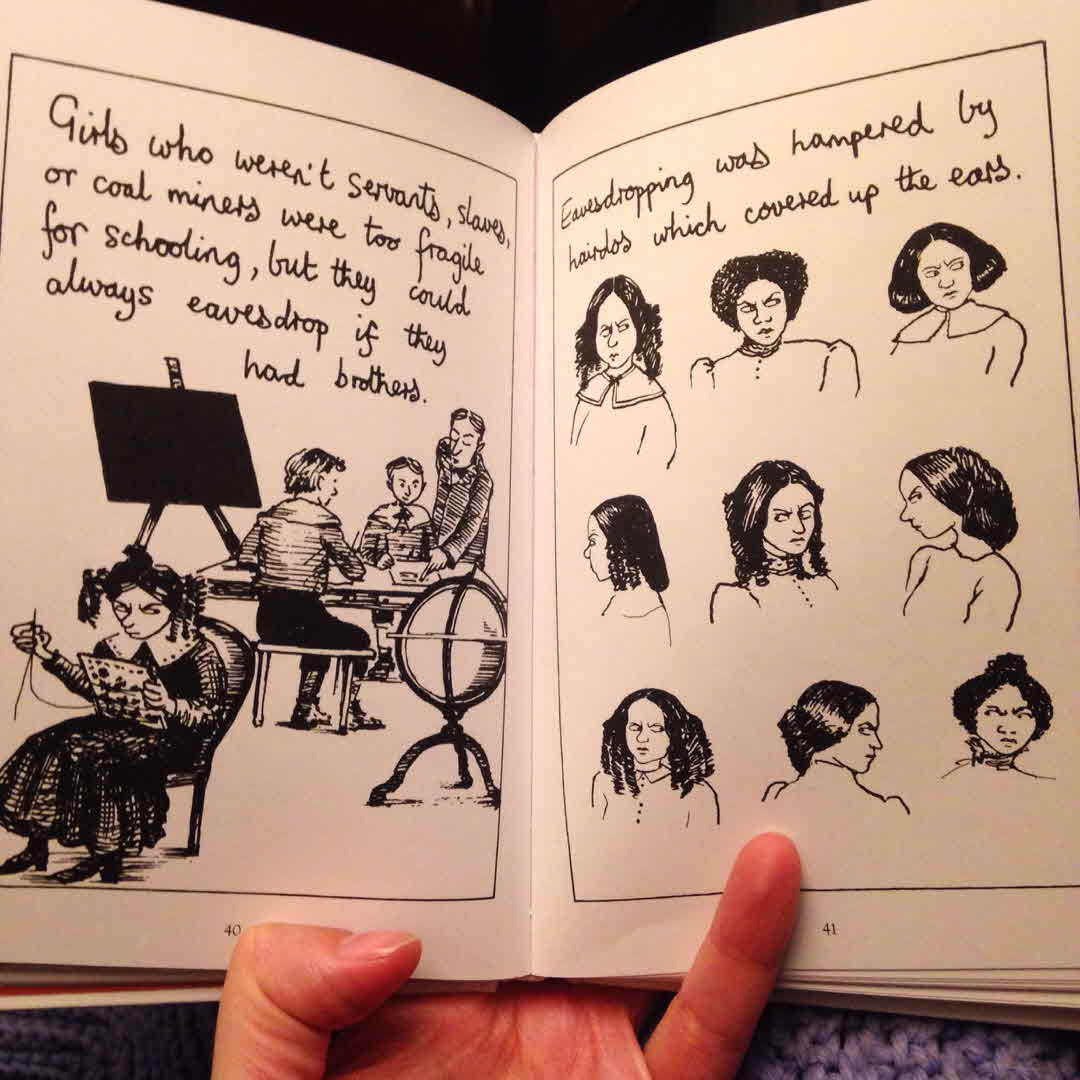 Girls who weren't servants, slaves,
or coal miners were too fragile
for schooling, but they could
always eavesdrop if they
had brothers.
40
Eavesdropping was hampered by
hairdos which covered up the ears.
41